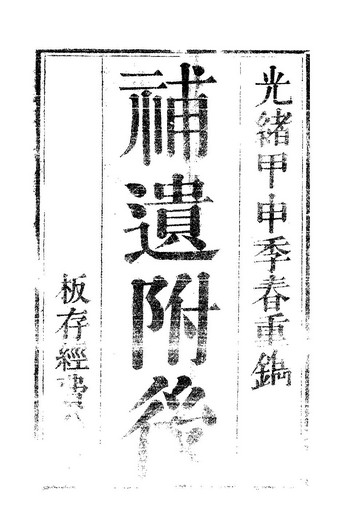 光緒甲申季春重鐫
補遺附後
板存經